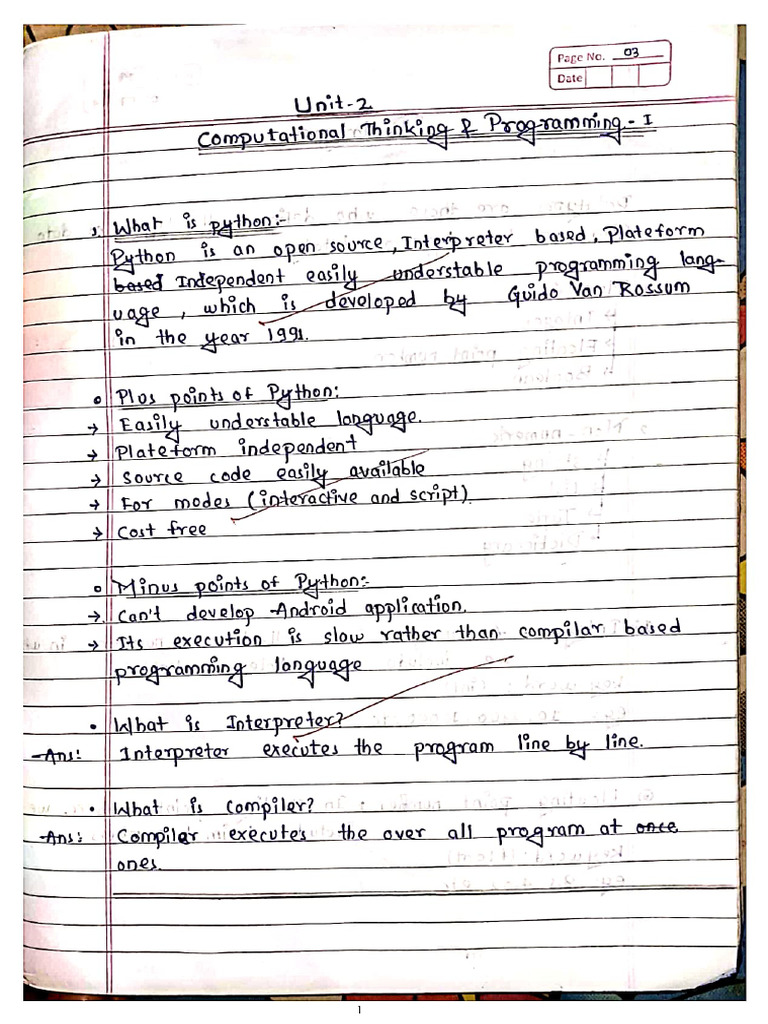 Page No. 03
Date
Unit-2
Computational Thinking & Programming - I
What is python:-
Python is an open source, Interpreter based, Plateform
based Independent easily understable programming lang-
uage, which is developed by Guido Van Rossum
in the year 1991.
Plus points of Python:
→ Easily understable language.
→ Plateform independent
→ Source code easily available
→ For modes (interactive and script)
→ Cost free
Minus points of Python:-
→ Can't develop Android application.
→ Its execution is slow rather than compilar based
programming language
• What is Interpreter?
Ans: Interpreter executes the program line by line.
• What is compiler?
Ans: Compiler executes the over all program at once
ones.
1